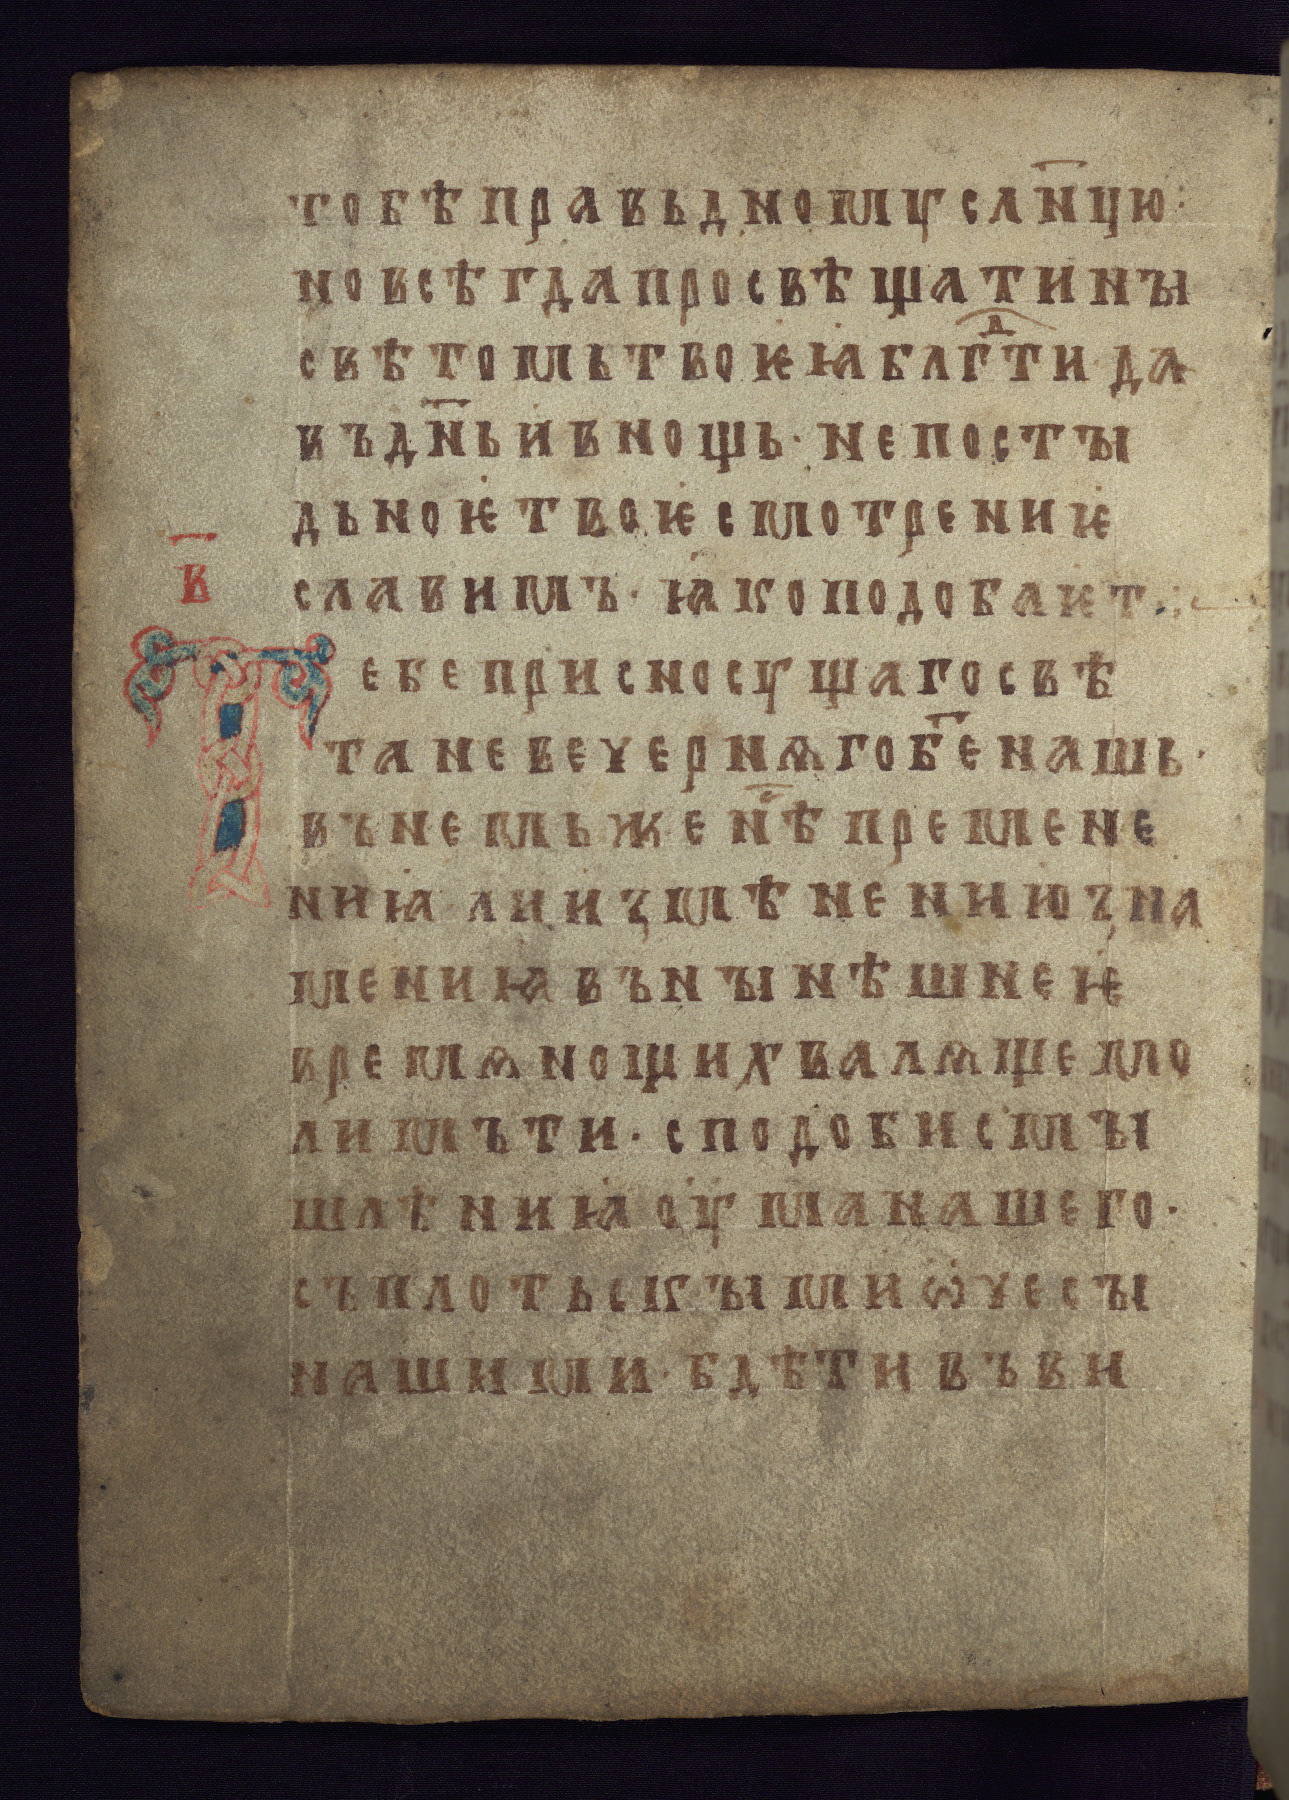 тобѣправьдномꙋсл҃нцю·
новсѣгдапросвѣщатинꙑ
свѣтомьтвоѥꙗблгⷣтида
въдн҃ьивнощь·непостꙑ
дьноѥтвоѥсмотрениѥ
в҃
славимъ·ꙗкоподобаѥт·:
Тебеприсносꙋщагосвѣ
таневечернѧгоб҃енашь·
внемьжен҃ѣпремене
ниꙗлиизмѣнениюзна
мениꙗвънꙑнѣшнеѥ
времѧнощихвалѧщемо
лимъти·сподобисмꙑ
шлѣниꙗоуманашего·
съплотьскꙑмиѡчесꙑ
нашими·бдѣтивъви